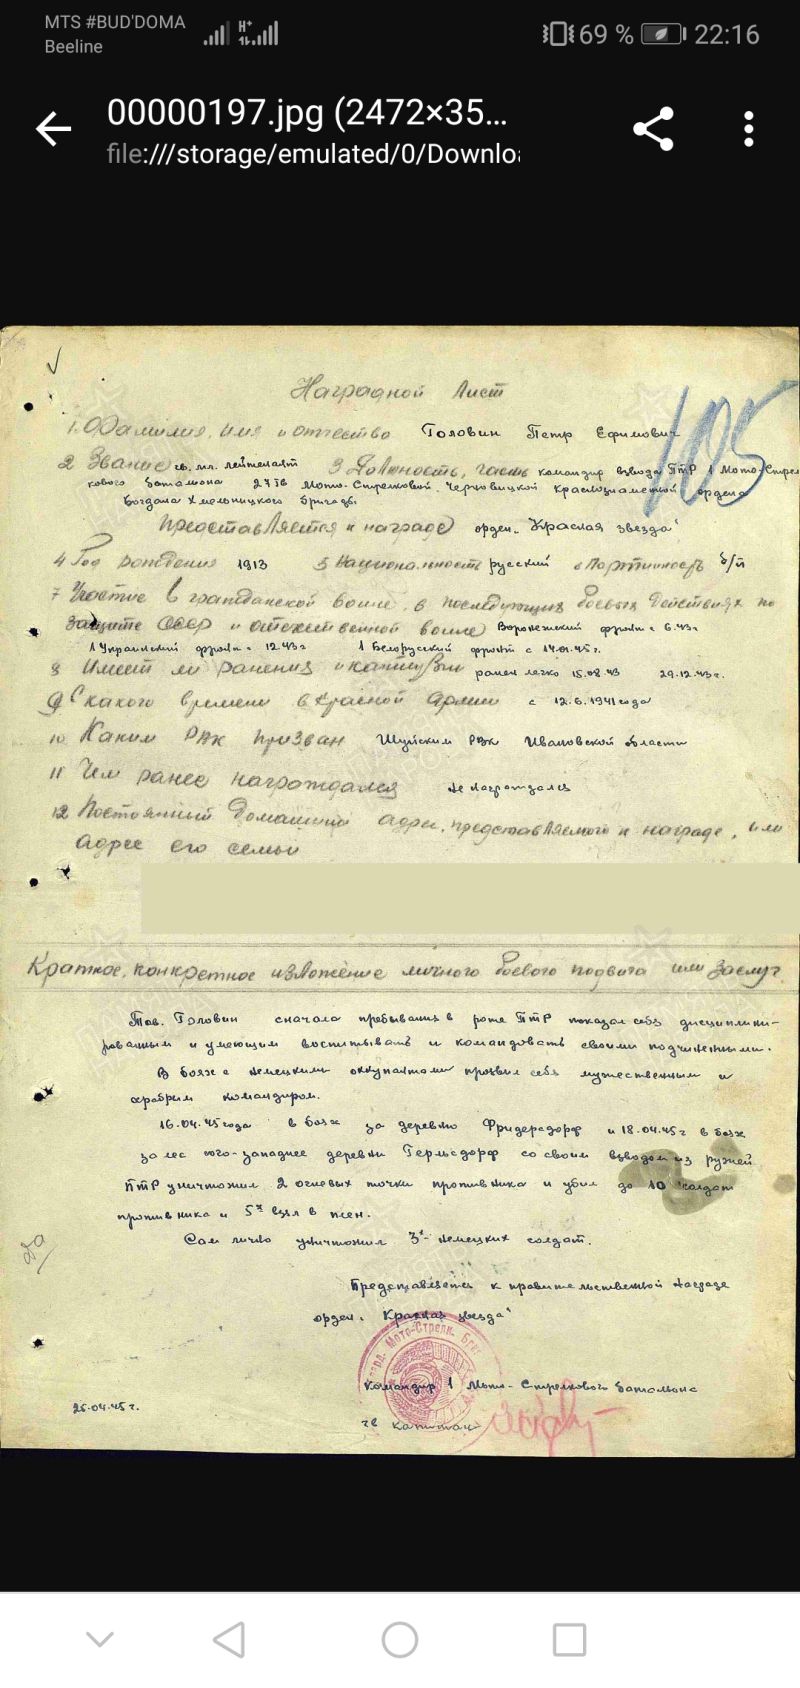 MTS #BUD'DOMA
Beeline
H+
69 %
22:16
00000197.jpg (2472×35...
file:///storage/emulated/0/Downlo
Наградной Лист
105
1. Фамилия, имя и отчество Головин Петр Ефимович
2 Звание гв. мл. лейтенант 3 Должность, часть командир взвода ПТР 1 Мото-Стрел
кового батальона 27 гв Мото-Стрелковой Черновицкой Краснознаменной ордена
Богдана Хмельницкого бригады
Представляется к награде орден „Красная звезда"
4 Год рождения 1913 5 Национальность русский 6 Партийность б/п
7 Участие в гражданской войне, в последующих боевых действиях по
защите СССР и отечественной войне Воронежский фронт с 6.43г
1 Украинский фронт с 12.43г 1 Белорусский фронт с 14.01.45г.
8 Имеет ли ранения и контузии ранен легко 15.08.43 29.12.43г.
9 С какого времени в Красной армии с 12.6.1941 года
10 Каким РВК призван Шуйским РВК Ивановской области
11 Чем ранее награждался не награждался
12 Постоянный домашний адрес, представляемого к награде, или
адрес его семьи
Краткое, конкретное изложение личного боевого подвига или заслуг
Тов. Головин сначала пребывания в роте ПТР показал себя дисциплини-
рованным и умеющим воспитывать и командовать своими подчиненными.
В боях с немецкими оккупантами проявил себя мужественным и
храбрым командиром.
16.04.45 года в боях за деревню Фридерсдорф и 18.04.45г в боях
за лес юго-западнее деревни Герльсдорф со своим взводом из ружей
ПТР уничтожил 2 огневых точки противника и убил до 10 солдат
противника и 5х взял в плен.
Сам лично уничтожил 3х немецких солдат.
Да
Представляется к правительственной награде
орден „Красная звезда"
Мото-Стрелк.
Командир 1 Мото-Стрелкового батальона
гв капитан
25.04.45г.